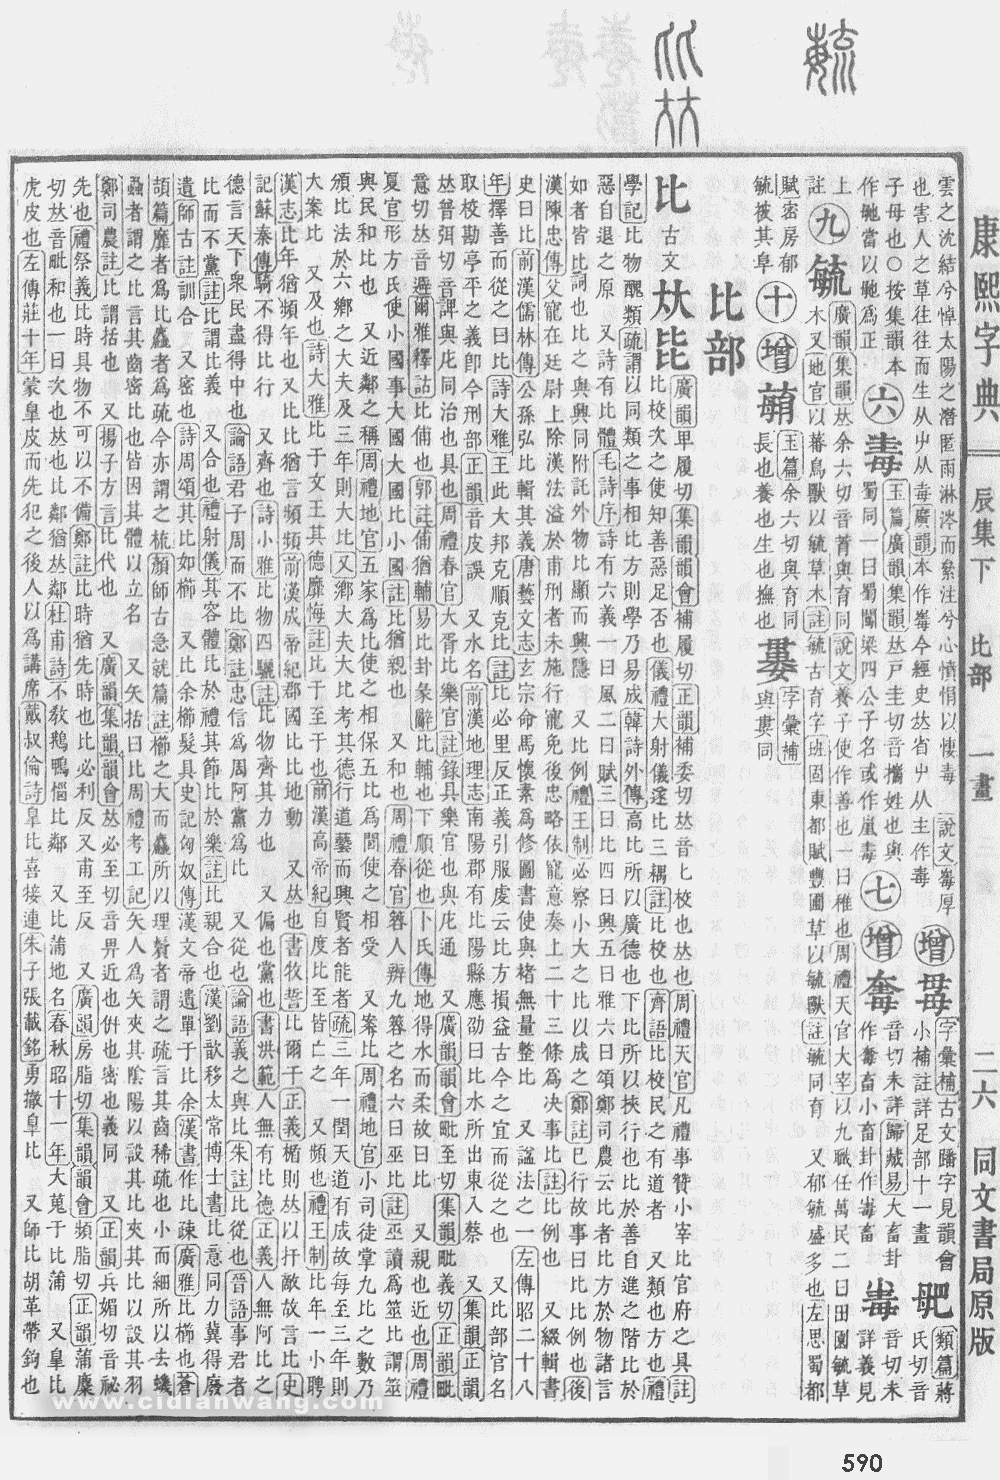 康熙字典
辰集下
比部
一畫
二六
同文書局原版
雲之沈結兮悼太陽之潛匿雨淋滲而紛注兮心憤悁以悽毒
也害人之草往往而生从屮从毒
子母也○按集韻本
作馳當以馳爲正
六
毒
增
七
增
九
毓
廣韻集韻𠀤余六切音育與育同說文養子使作善也一曰稚也周禮天官大宰以九職任萬民二曰園圃毓草
木又地官以蕃鳥獸以毓草木註毓古育字班固東都賦豐圃草以毓獸註毓同育
又毓盛多也左思蜀都
賦密房郁
毓被其阜
十
增
玉篇余六切與育同
長也養也生也撫也
字彙補
比部
比
古文
廣韻𤰞履切集韻韻會補履切正韻補委切𠀤音匕校也𠀤也周禮天官凡禮事贊小宰比官府之具註
比校次之使知善惡足否也儀禮大射儀遂比三耦註比校也齊語比校民之有道者
又類也方也禮
學記比物醜類疏謂以同類之事相比方則學乃易成韓詩外傳高比所以廣德也下比所以挾行也比於善自進之階比於
惡自退之原
又詩有比體毛詩序詩有六義一曰風二曰賦三曰比四曰興五曰雅六曰頌鄭司農云比者比方於物諸言
如者皆比詞也比之與興同附託外物比顯而興隱
又比例禮王制必察小大之比以成之鄭註已行故事曰比比例也後
漢陳忠傳父寵在廷尉上除漢法溢於甫刑者未施行寵免後忠略依寵意奏上二十三條爲決事比註比例也
又綴輯書
史曰比前漢儒林傳公孫弘比輯其義唐藝文志玄宗命馬懷素爲修圖書使與褚無量整比
又諡法之一左傳昭二十八
年擇善而從之曰比詩大雅王此大邦克順克比註比必里反正義引服虔云比方損益古今之宜而從之也
又比部官名
取校勘亭平之義卽今刑部正韻音皮誤
又水名前漢地理志南陽郡有比陽縣應劭曰比水所出東入蔡
又集韻正韻
𠀤普弭切音諀與庀同治也具也周禮春官大胥比樂官註錄具樂官也與庀通
又廣韻韻會毗至切集韻毗義切正韻毗
意切𠀤音避爾雅釋詁比俌也郭註俌猶輔易比卦彖辭比輔也下順從也卜氏傳地得水而柔故曰比
又親也近也周禮
夏官形方氏使小國事大國大國比小國註比猶親也
又和也周禮春官簭人辨九簭之名六曰巫比註巫讀爲筮比謂筮
與民和比也
又近鄰之稱周禮地官五家爲比使之相保五比爲閭使之相受
又案比周禮地官小司徒掌九比之數乃
頒比法於六鄉之大夫及三年則大比又鄉大夫大比考其德行道藝而興賢者能者疏三年一閏天道有成故每至三年則
大案比
又及也詩大雅比于文王其德靡悔註比于至于也前漢高帝紀自度比至皆亡之
又頻也禮王制比年一小聘
漢志比年猶頻年也又比比猶言頻頻前漢成帝紀郡國比比地動
又𠀤也書牧誓比爾干正義楯則𠀤以扞敵故言比史
記蘇秦傳騎不得比行
又齊也詩小雅比物四驪註比物齊其力也
又偏也黨也書洪範人無有比德正義人無阿比之
德言天下衆民盡得中也論語君子周而不比鄭註忠信爲周阿黨爲比
又從也論語義之與比朱註比從也晉語事君者
比而不黨註比謂比義
又合也禮射儀其容體比於禮其節比於樂註比親合也漢劉歆移太常博士書比意同力冀得廢
遺師古註訓合
又密也詩周頌其比如櫛
又比余櫛髮具史記匈奴傳漢文帝遺單于比余漢書作比疎廣雅比櫛也蒼
頡篇靡者爲比麤者爲疏今亦謂之梳顏師古急就篇註櫛之大而麤所以理鬢者謂之疏言其齒稀疏也小而細所以去蟣
蝨者謂之比言其齒密比也皆因其體以立名
又矢括曰比周禮考工記矢人爲矢夾其陰陽以設其比夾其比以設其羽
鄭司農註比謂括也
又揚子方言比代也
又廣韻集韻韻會𠀤必至切音畀近也倂也密也義同
又正韻兵媚切音祕
先也禮祭義比時具物不可以不備鄭註比時猶先時也比必利反又甫至反
又廣韻房脂切集韻韻會頻脂切正韻蒲麋
切𠀤音毗和也一曰次也𠀤也比鄰猶𠀤鄰杜甫詩不敎鵝鴨惱比鄰
又比蒲地名春秋昭十一年大蒐于比蒲
又皐比
虎皮也左傳莊十年蒙皐皮而先犯之後人以爲講席戴叔倫詩皐比喜接連朱子張載銘勇撤皐比
又師比胡革帶鉤也
www.cidianwang.com
590